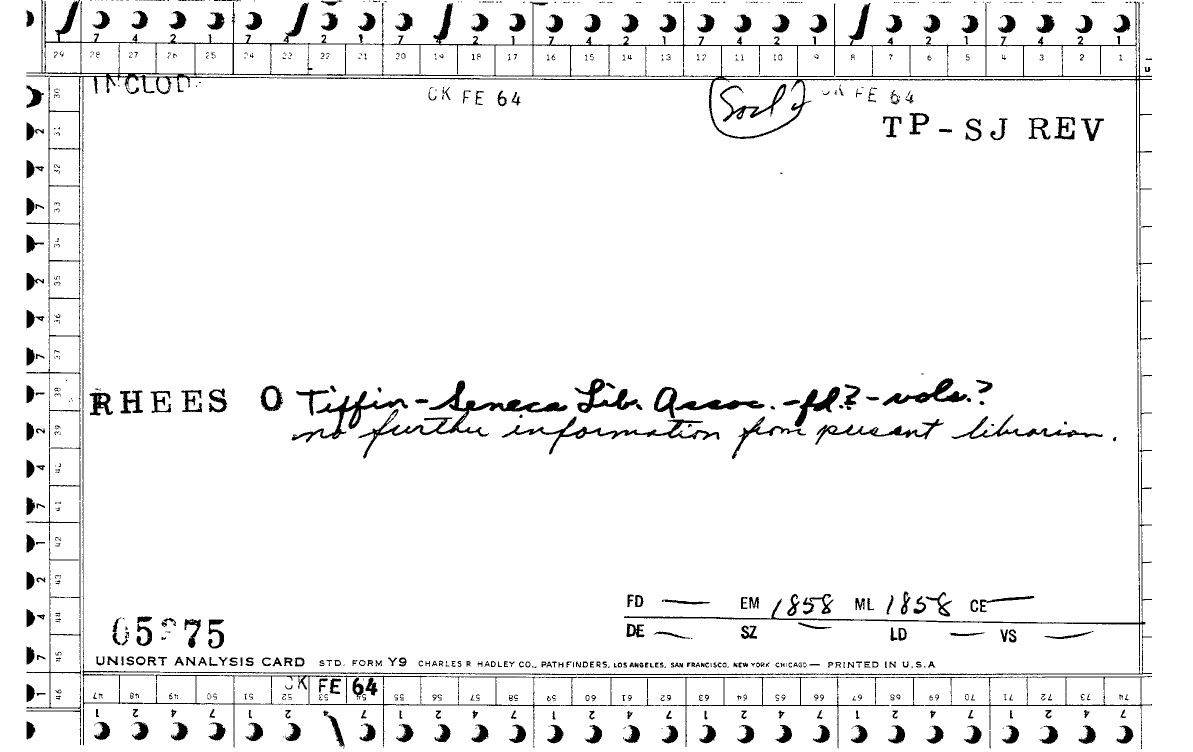 7 4 2 1 7 4 2 1 7 4 2 1 7 4 2 1 7 4 2 1 7 4 2 1 7 4 2 1
29 28 27 26 25 24 23 22 21 20 19 18 17 16 15 14 13 12 11 10 9 8 7 6 5 4 3 2 1
INCLUD
CK FE 64
CK FE 64
TP-SJ REV
30
31
32
33
34
35
36
37
38
39
40
41
42
43
44
45
46
RHEES O Tiffin-Seneca Lib. Assoc. -fd.? -vols.?
no further information from present librarian.
FD — EM 1858 ML 1858 CE —
DE — SZ — LD — VS —
UNISORT ANALYSIS CARD STD. FORM Y9 CHARLES R HADLEY CO., PATHFINDERS, LOS ANGELES, SAN FRANCISCO, NEW YORK CHICAGO — PRINTED IN U.S.A
CK FE 64
47 48 49 50 51 52 53 54 55 56 57 58 59 60 61 62 63 64 65 66 67 68 69 70 71 72 73 74
1 2 4 7 1 2 4 7 1 2 4 7 1 2 4 7 1 2 4 7 1 2 4 7 1 2 4 7